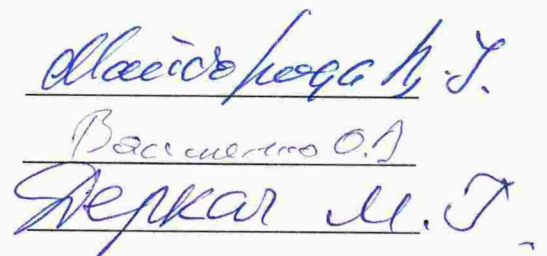 Майборода В. І.
Василенко О.А
Деркач М. Г.